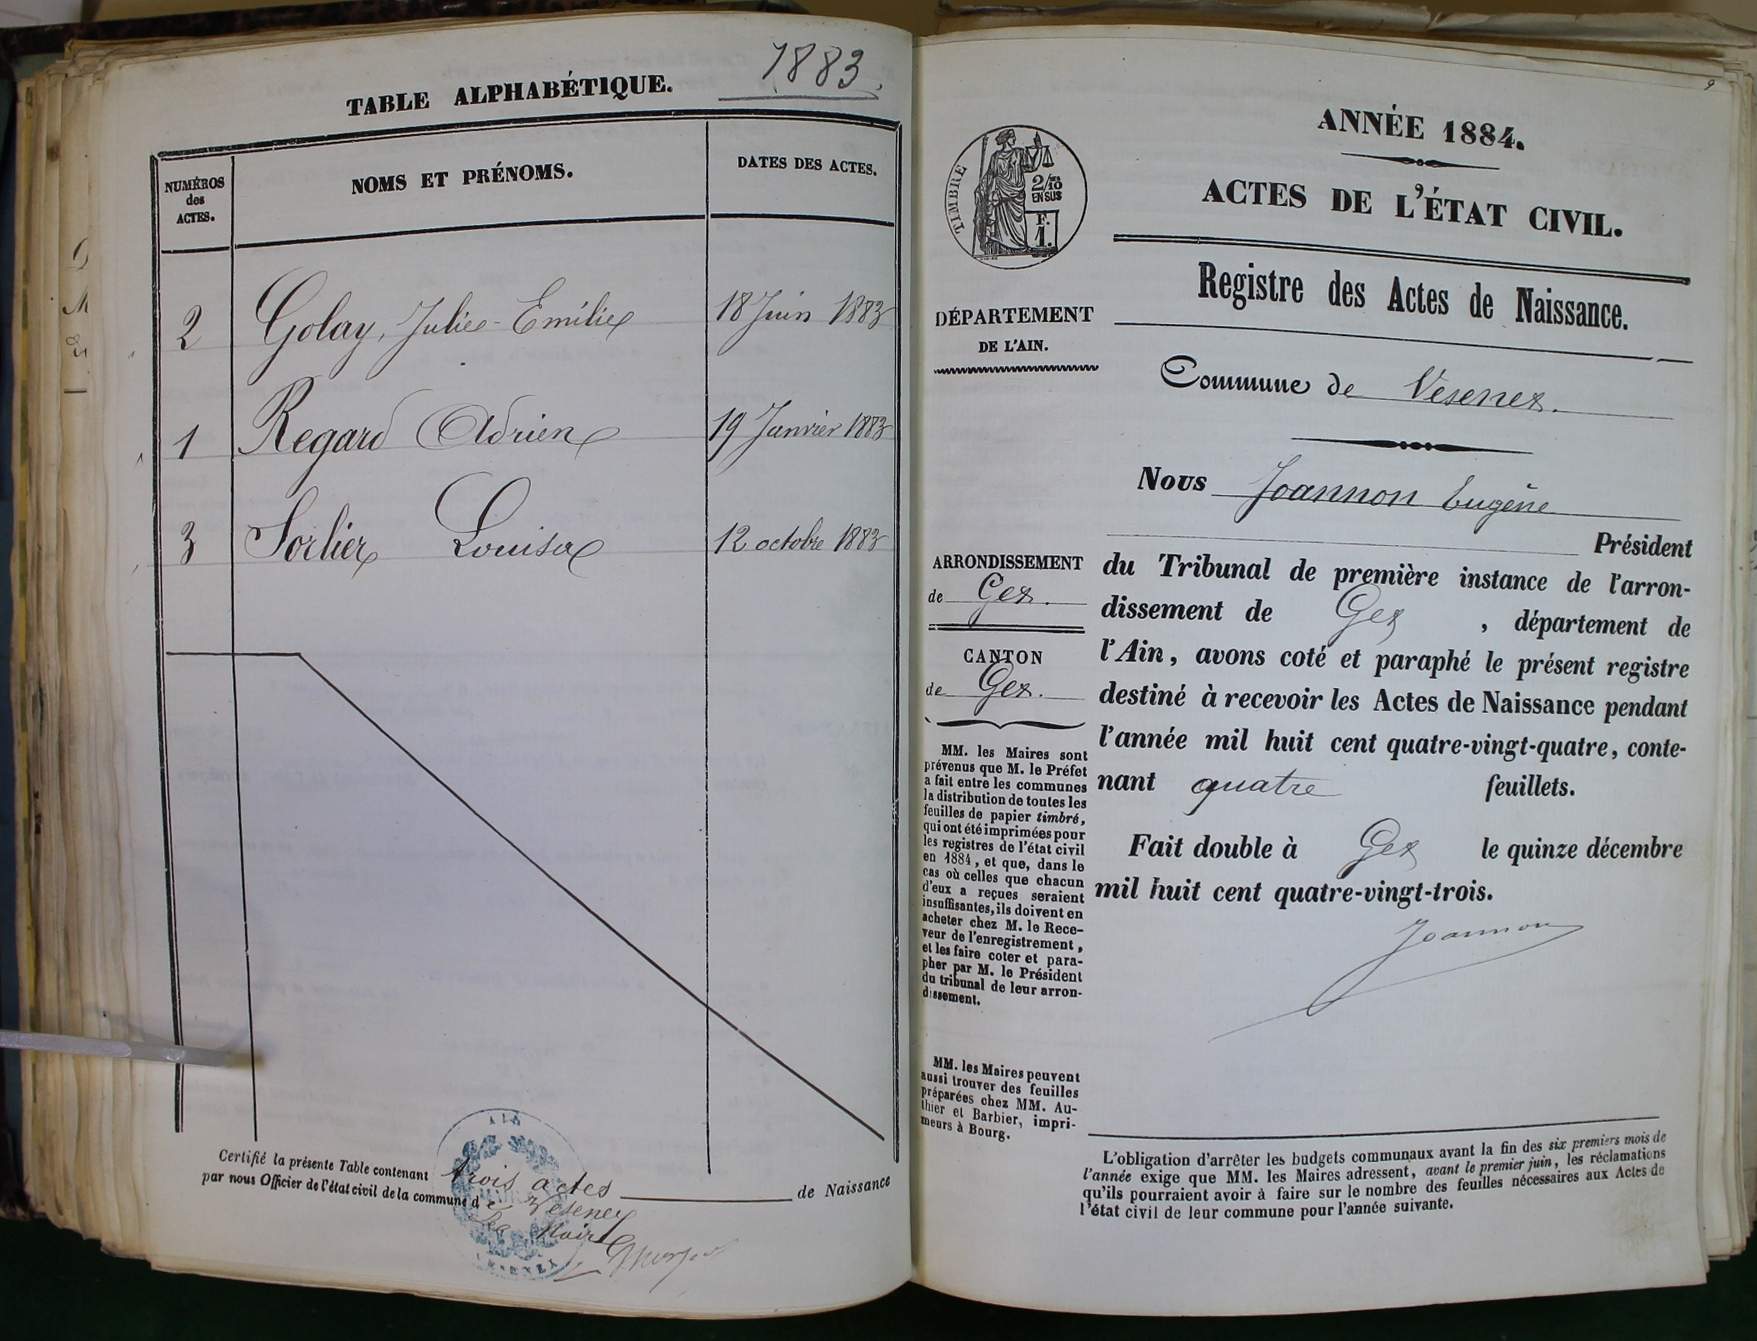 1883.
TABLE ALPHABÉTIQUE.
NUMÉROS
des
ACTES.
NOMS ET PRÉNOMS.
DATES DES ACTES.
2 Golay, Julie-Emilie 18 Juin 1883
1 Regard Adrien 19 Janvier 1883
3 Sorlier Louisa 12 octobre 1883
Certifié la présente Table contenant trois actes de Naissance
par nous Officier de l'état civil de la commune de Vesenex
Le Maire
9
ANNÉE 1884.
ACTES DE L'ÉTAT CIVIL.
TIMBRE
2/10
EN SUS
F.
1.
Registre des Actes de Naissance.
DÉPARTEMENT
DE L'AIN.
Commune de Vesenex.
Nous Joannon Eugène
Président
du Tribunal de première instance de l'arron-
dissement de Gex, département de
l'Ain, avons coté et paraphé le présent registre
destiné à recevoir les Actes de Naissance pendant
l'année mil huit cent quatre-vingt-quatre, conte-
nant quatre feuillets.
Fait double à Gex le quinze décembre
mil huit cent quatre-vingt-trois.
Joannon
ARRONDISSEMENT
de Gex.
CANTON
de Gex.
MM. les Maires sont
prévenus que M. le Préfet
a fait entre les communes
la distribution de toutes les
feuilles de papier timbré,
qui ont été imprimées pour
les registres de l'état civil
en 1884, et que, dans le
cas où celles que chacun
d'eux a reçues seraient
insuffisantes, ils doivent en
acheter chez M. le Rece-
veur de l'enregistrement,
et les faire coter et para-
pher par M. le Président
du tribunal de leur arron-
dissement.
MM. les Maires peuvent
aussi trouver des feuilles
préparées chez MM. Au-
thier et Barbier, impri-
meurs à Bourg.
L'obligation d'arrêter les budgets communaux avant la fin des six premiers mois de
l'année exige que MM. les Maires adressent, avant le premier juin, les réclamations
qu'ils pourraient avoir à faire sur le nombre des feuilles nécessaires aux Actes de
l'état civil de leur commune pour l'année suivante.